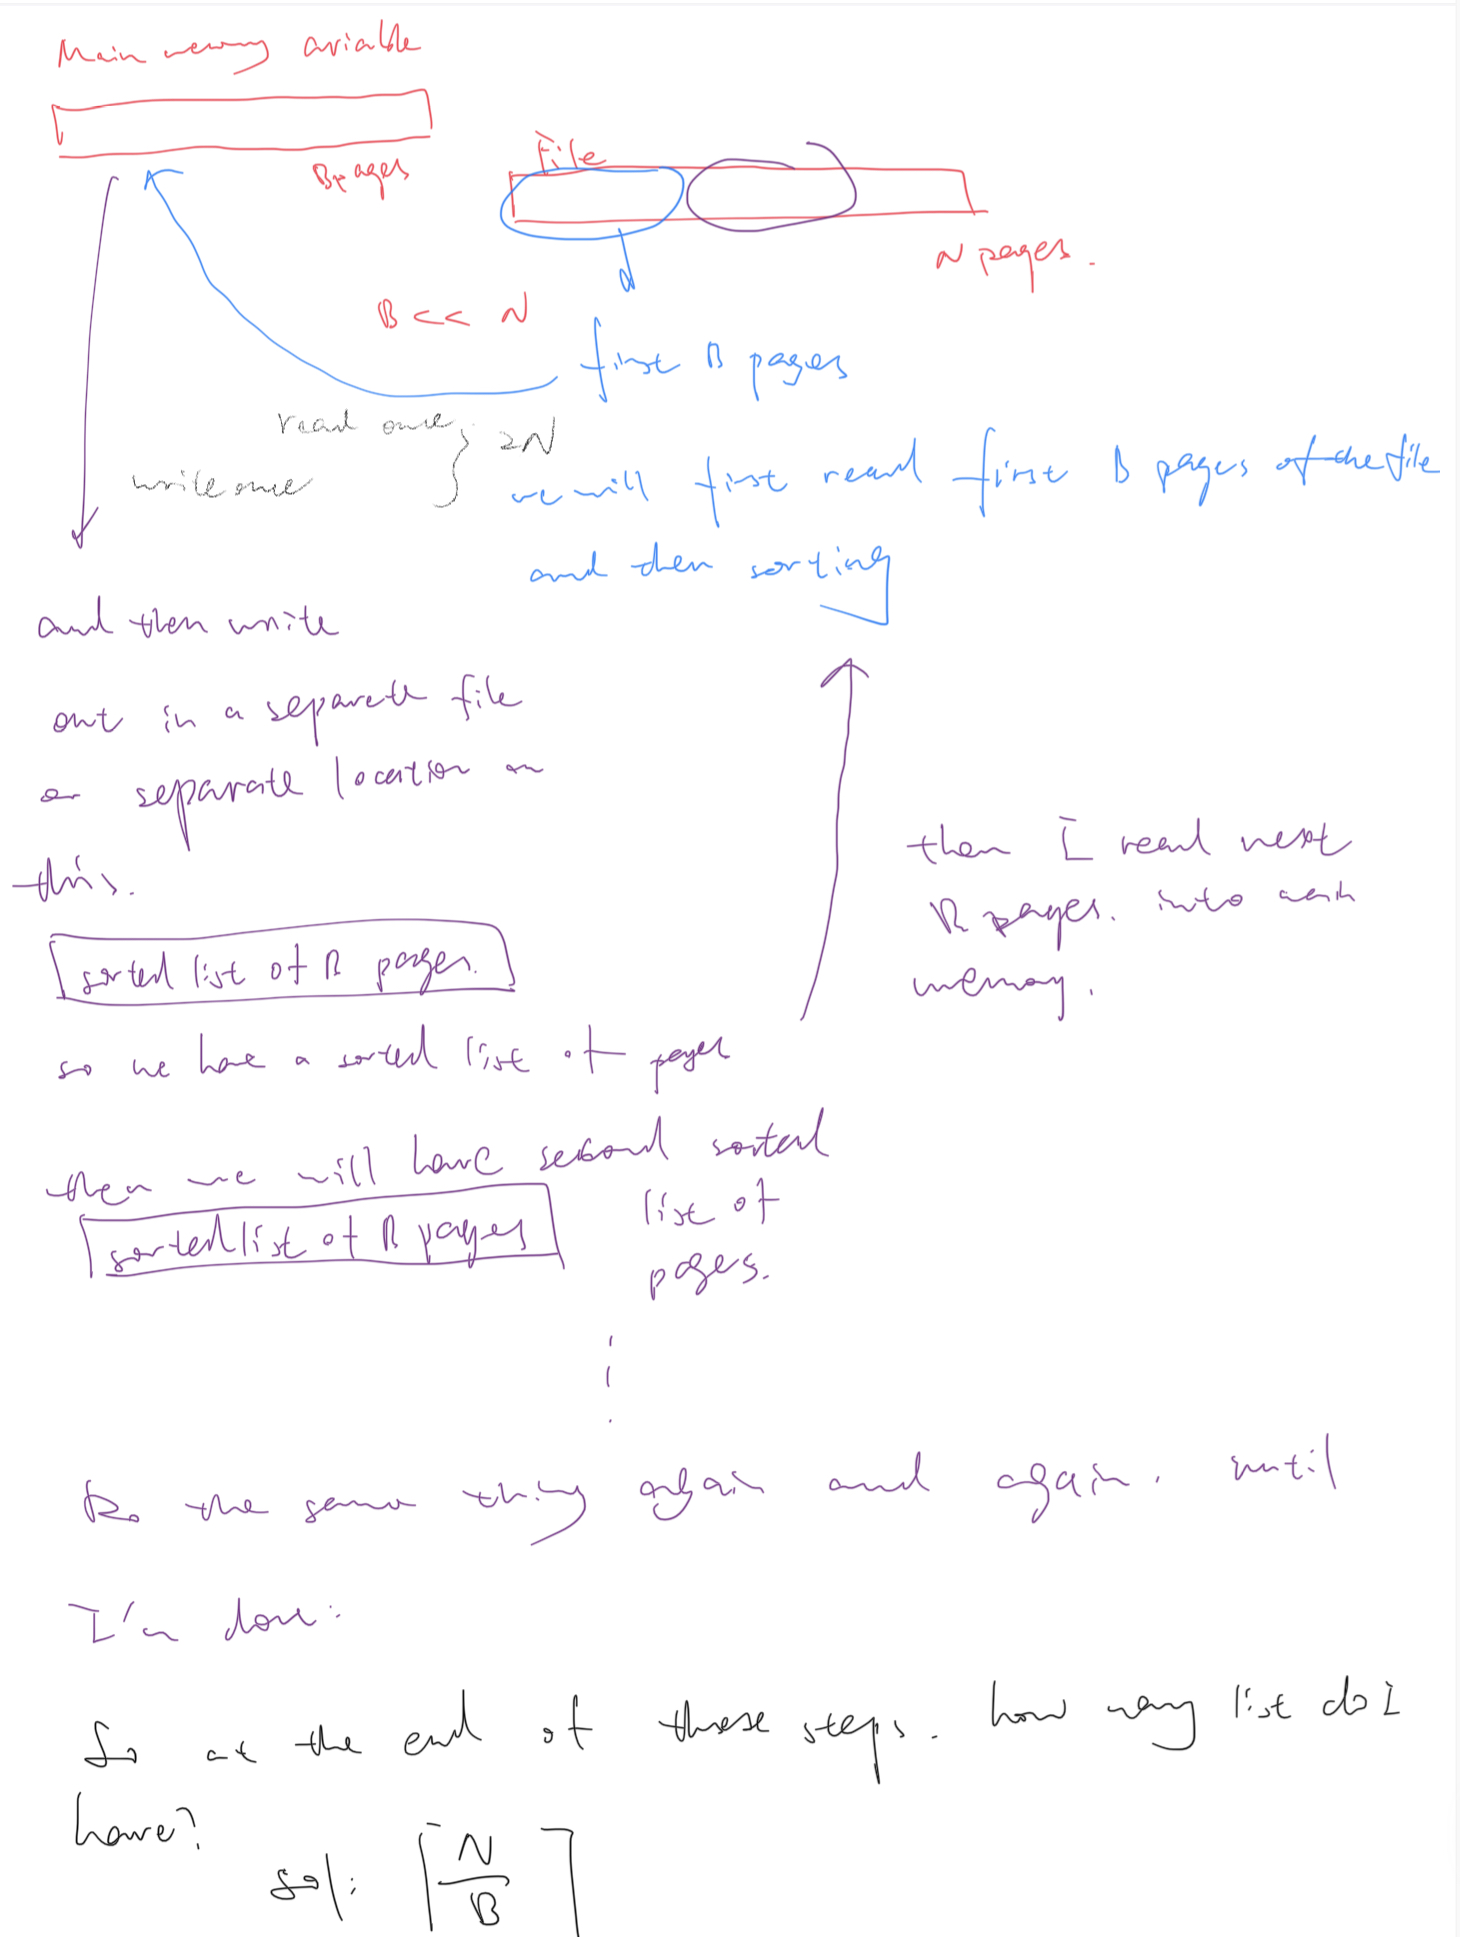 Main memory avialble
B pages
File
N pages.
B << N
first B pages
read once
write once
2N
we will first read first B pages of the file
and then sorting
and then write
out in a separate file
or separate location on
this.
then I read next
B pages. into main
memory.
sorted list of B pages.
so we have a sorted list of pages
then we will have second sorted
list of
pages.
sorted list of B pages
Do the same thing again and again. until
I'm done.
So at the end of these steps. how many list do I
have?
sol: ⌈N/B⌉